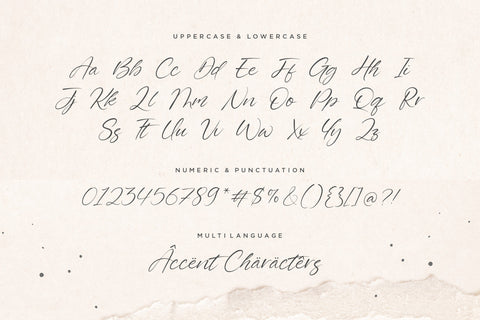 UPPERCASE & LOWERCASE
Aa Bb Cc Dd Ee Ff Gg Hh Ii
Jj Kk Ll Mm Nn Oo Pp Qq Rr
Ss Tt Uu Vv Ww Xx Yy Zz
NUMERIC & PUNCTUATION
0123456789*#$%&(){}[]@?!
MULTILANGUAGE
Âccënt Chäräctêrs